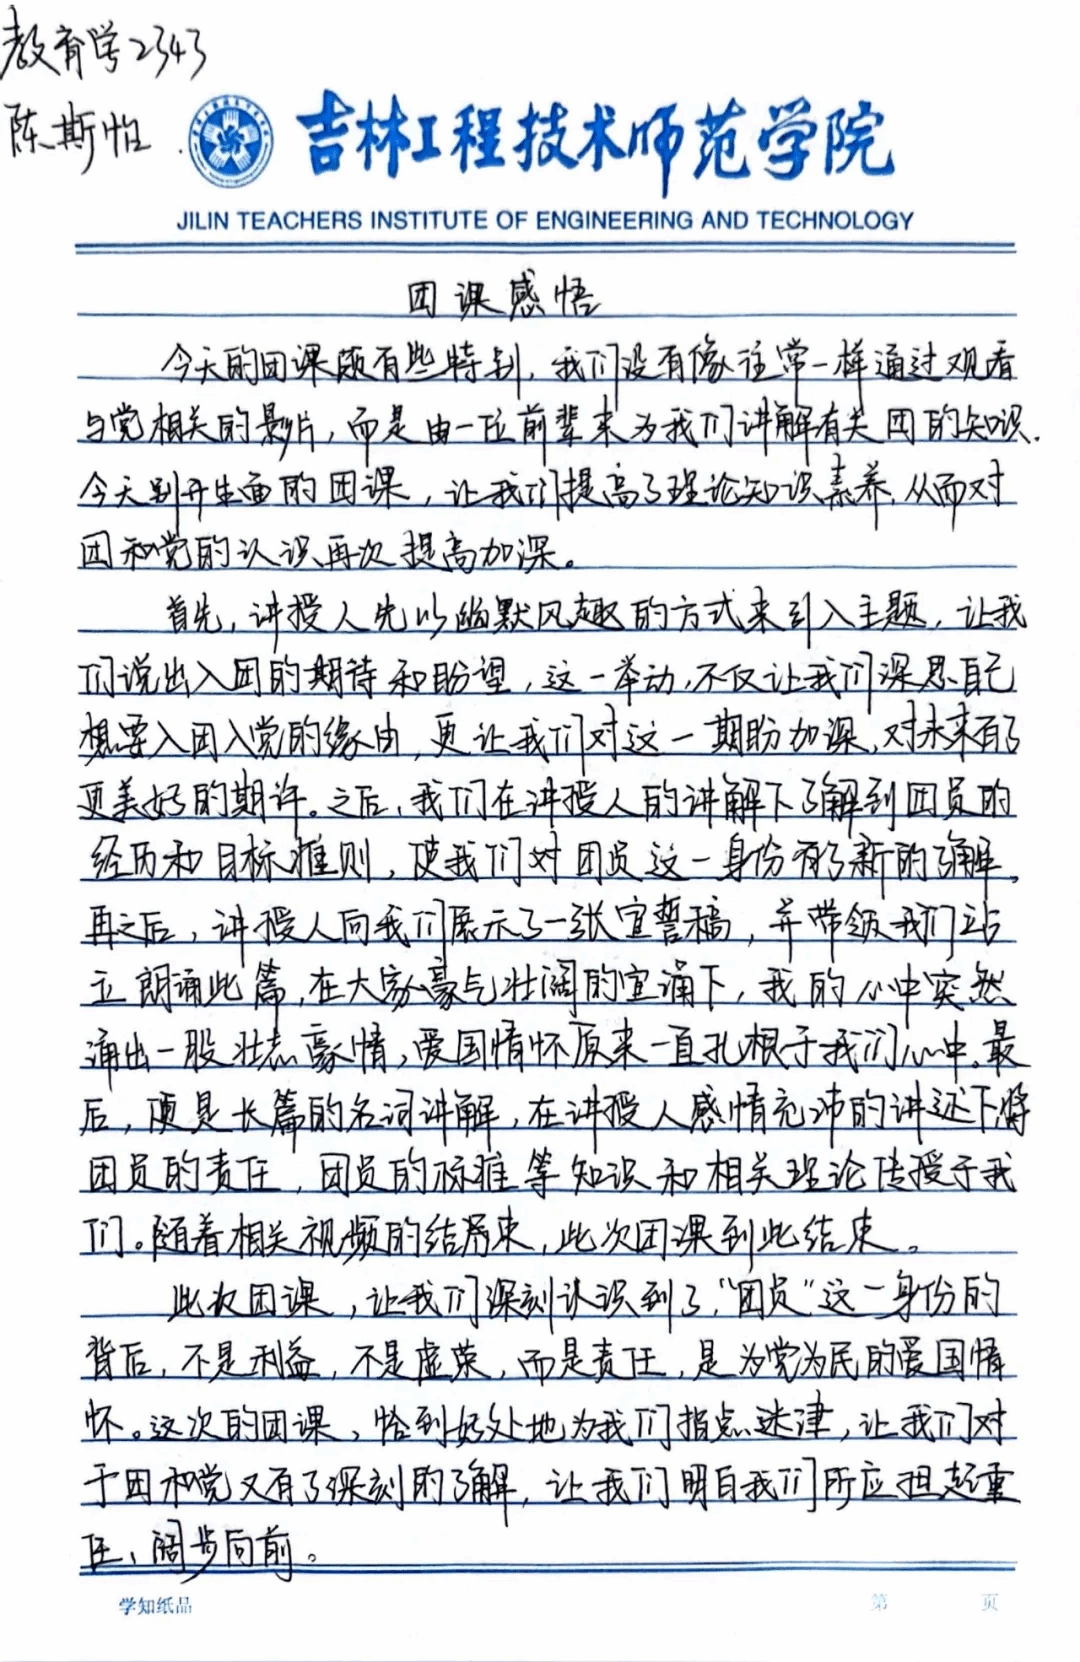 教育学2343
陈斯怡
吉林工程技术师范学院
JILIN TEACHERS INSTITUTE OF ENGINEERING AND TECHNOLOGY
团课感悟
今天的团课颇有些特别，我们没有像往常一样通过观看
与党相关的影片，而是由一位前辈来为我们讲解有关团的知识.
今天别开生面的团课，让我们提高了理论知识素养，从而对
团和党的认识再次提高加深。
首先，讲授人先以幽默风趣的方式来引入主题，让我
们说出入团的期待和盼望，这一举动，不仅让我们深思自己
想要入团入党的缘由，更让我们对这一期盼加深，对未来有了
更美好的期许。之后，我们在讲授人的讲解下了解到团员的
经历和目标准则，使我们对团员这一身份有了新的了解，
再之后，讲授人向我们展示了一张宣誓稿，并带领我们站
立朗诵此篇，在大家豪气壮阔的宣诵下，我的心中突然
涌出一股壮志豪情，爱国情怀原来一直扎根于我们心中。最
后，便是长篇的名词讲解，在讲授人感情充沛的讲述下将
团员的责任，团员的标准等知识和相关理论传授于我
们。随着相关视频的结束，此次团课到此结束。
此次团课，让我们深刻认识到了，“团员”这一身份的
背后，不是利益，不是虚荣，而是责任，是为党为民的爱国情
怀。这次的团课，恰到好处地为我们指点迷津，让我们对
于团和党又有了深刻的了解，让我们明白我们所应担起重
任、阔步向前。
学知纸品
第 页